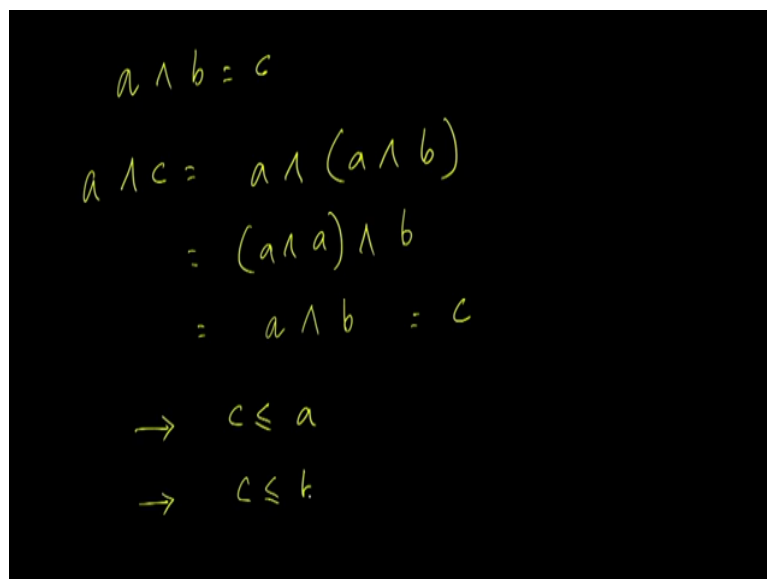 a ∧ b = c
a ∧ c = a ∧ (a ∧ b)
= (a ∧ a) ∧ b
= a ∧ b = c
→ c ≤ a
→ c ≤